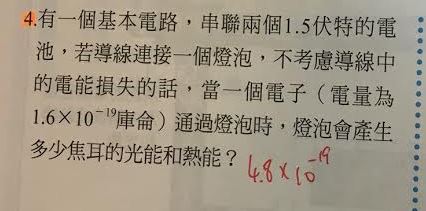 4.有一個基本電路,串聯兩個1.5伏特的電
池,若導線連接一個燈泡,不考慮導線中
的電能損失的話,當一個電子(電量為
1.6×10⁻¹⁹庫侖)通過燈泡時,燈泡會產生
多少焦耳的光能和熱能?4.8×10⁻¹⁹